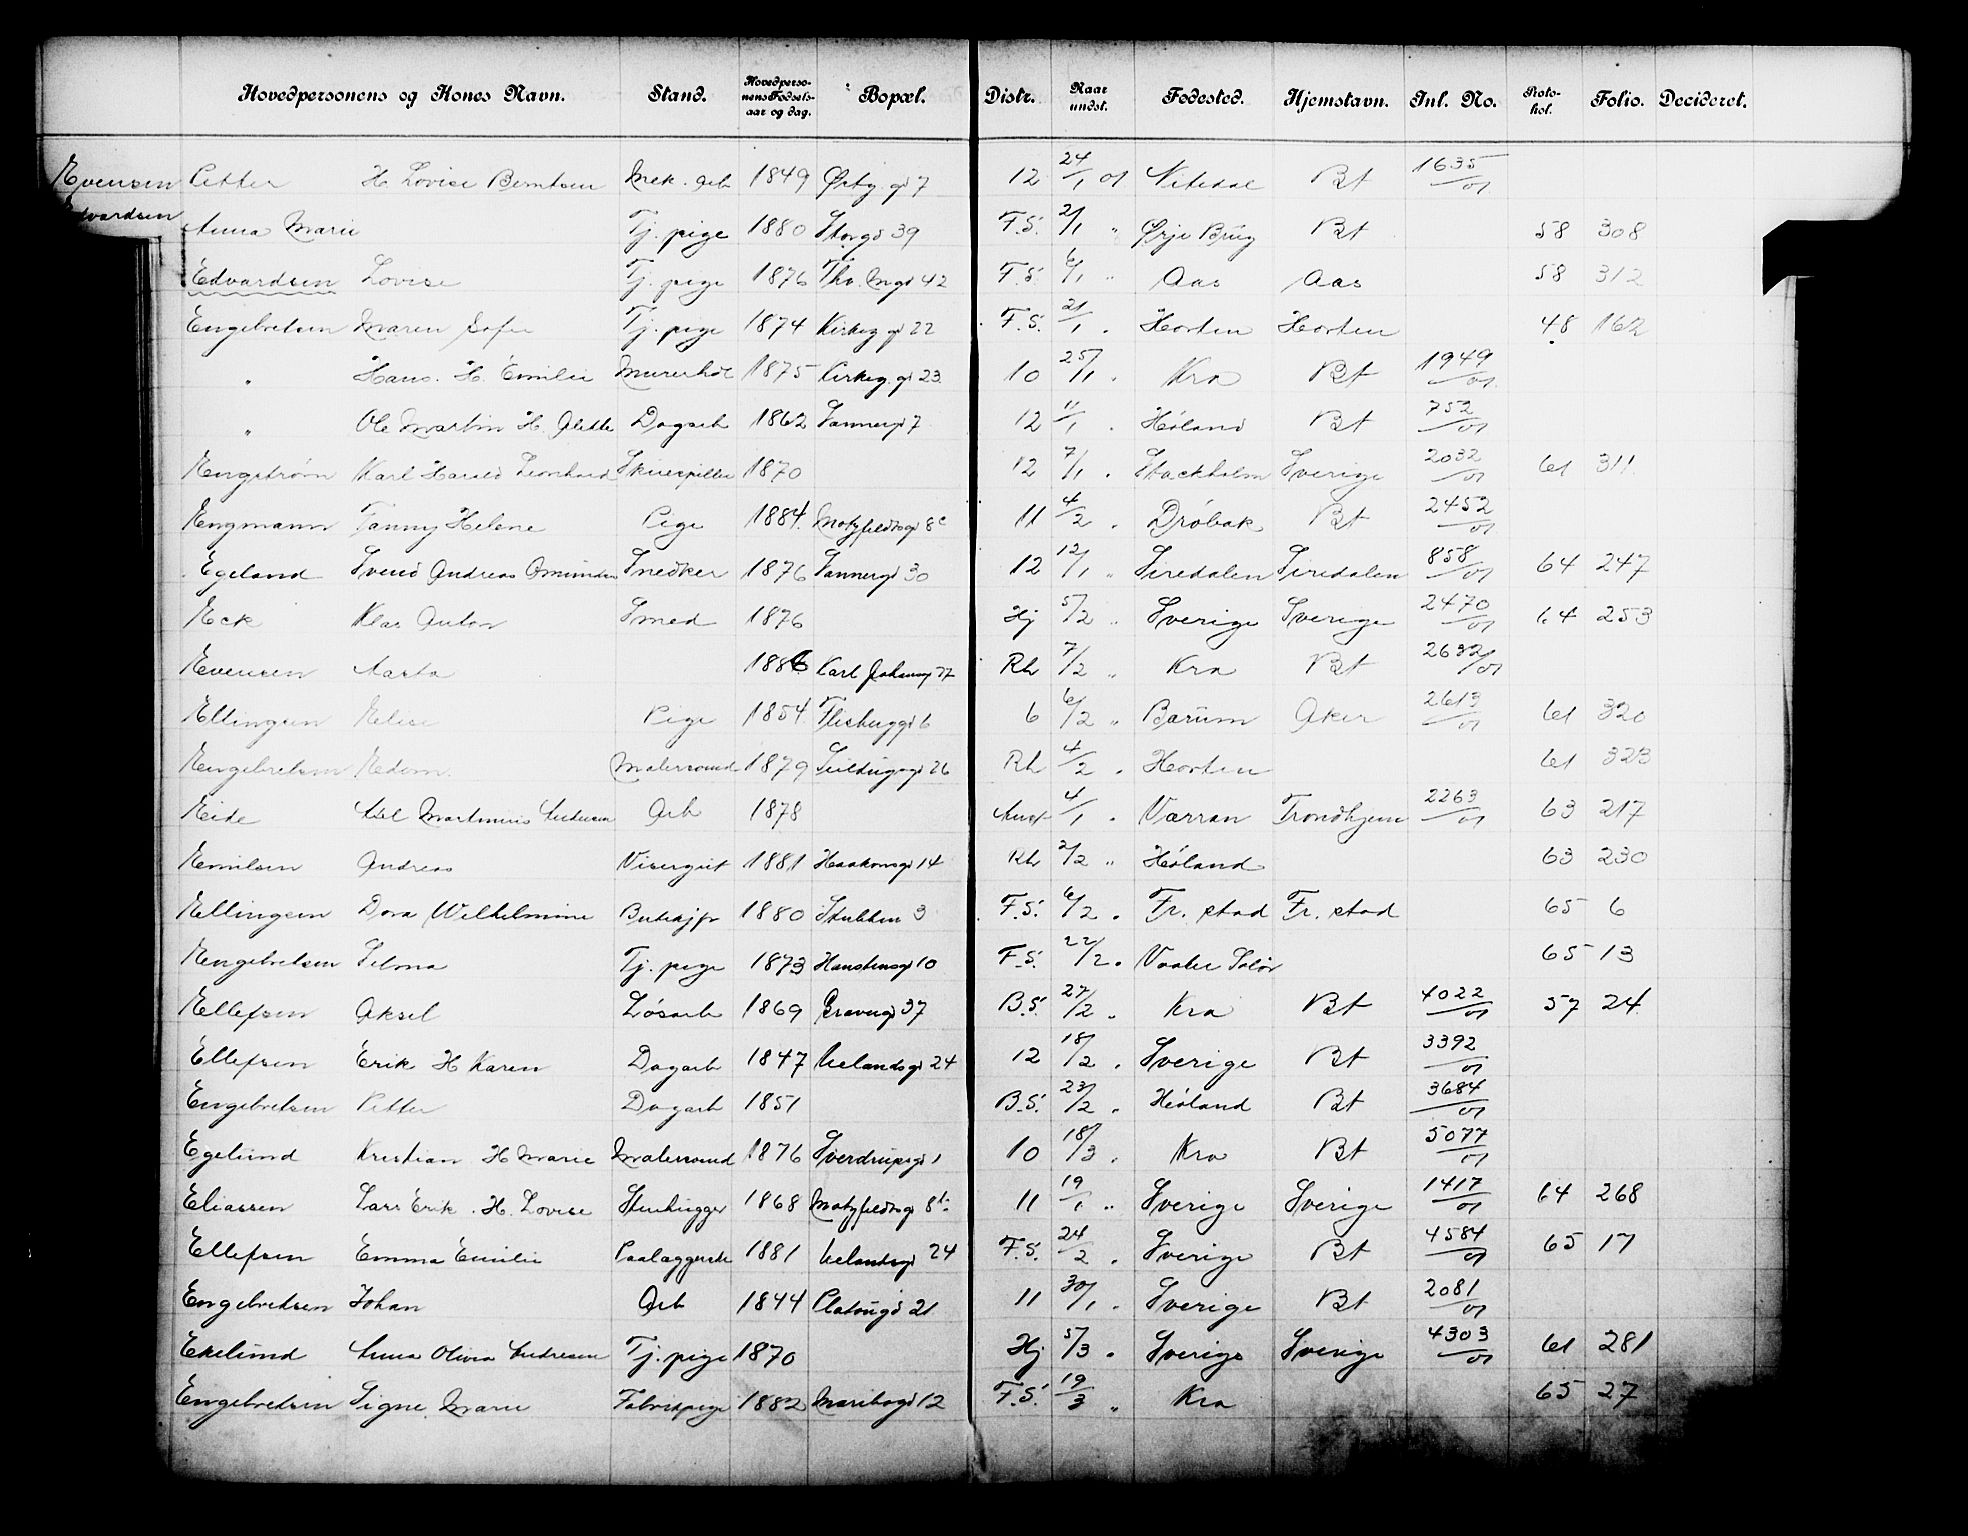 Hovedpersonens og Kones Navn. Stand. Hovedpersonens Fødselsaar og dag. Bopæl. Distr. Naar undst. Fødested. Hjemstavn. Inl. No. Protokol. Folio. Decideret.
Evensen Petter H. Lovise Berntsen Mek. arb 1849 Østby. gd 7 12 24/1 01 Nitedal Bt 1635/01
Edvardsen Anna Marie Tj. pige 1880 Storgd 39 F.S. 2/1 " Ørje Brug Bt 58 308
Edvardsen Lovise Tj. pige 1876 Thv. Mgd 42 F.S. 6/1 " Aas Aas 58 312
Engebretsen Maren Sofie Tj. pige 1874 Kirkeg gd 22 F.S. 21/1 " Horten Horten 48 162
" Hans. H. Emilie Murerhdl 1875 Kirkeg. gd 23 10 25/1 " Kra Bt 1949/01
" Ole Martin H. Alette Dagarb 1862 Vannergd 7 12 11/1 " Høland Bt 752/01
Engstrøm Karl Harald Leonhard Skuespiller 1870 12 7/1 " Stockholm Sverige 2032/01 61 311
Engmann Fanny Helene Pige 1884 Motzfeldtsgd 8c 11 4/2 " Drøbak Bt 2452/01
Egeland Svend Andreas Omundsen Snedker 1876 Vannergd 30 12 12/1 " Siredalen Siredalen 858/01 64 247
Eck Klas Anton Smed 1876 Hj 5/2 " Sverige Sverige 2470/01 64 253
Evensen Aasta 1886 Karl Johansgd 27 Rh 7/2 " Kra Bt 2632/01
Ellingsen Elise Pige 1854 Fleskuggd 6 6 6/2 " Bærum Aker 2613/01 61 320
Engebretsen Edom. Malersvend 1879 Seildugsgd 26 Rh 4/2 " Horten 61 323
Eide Axel Martinius Andersen Arb 1878 Anst 4/1 " Værran Trondhjem 2263/01 63 217
Emilsen Andreas Visergut 1881 Haakonsgd 14 Rh 2/2 " Høland 63 230
Ellingsen Dora Wilhelmine Butikjfr 1880 Stubben 3 F.S. 6/2 " Fr. stad Fr. stad 65 6
Engebretsen Selma Tj. pige 1873 Hanstensgd 10 F.S. 22/2 " Vaaler Solør 65 13
Ellefsen Aksel Løsarb 1869 Gravergd 37 B.S. 27/2 " Kra Bt 4022/01 57 24
Ellefsen Erik H Karen Dagarb 1847 Uelandsgd 24 12 18/2 " Sverige Bt 3392/01
Engebretsen Petter Dagarb 1851 B.S. 23/2 " Høland Bt 3684/01
Egelund Kristian H Marie Malersvend 1876 Sverdrupsgd 1 10 18/3 " Kra Bt 5077/01
Eliassen Lars Erik. H. Lovise Stenhugger 1868 Motzfeldtsgd 8b 11 19/1 " Sverige Sverige 1417/01 64 268
Ellefsen Emma Emilie Paalæggerske 1881 Uelandsgd 24 F.S. 24/2 " Sverige Bt 4584/01 65 17
Engebretsen Johan Arb 1844 Platougd 21 11 30/1 " Sverige Bt 2081/01
Ekelund Anna Olivia Andresen Tj. pige 1870 Hj 5/3 " Sverige Sverige 4303/01 61 281
Engebretsen Signe Marie Fabrikpige 1882 Maribogd 12 F.S. 19/3 " Kra 65 27